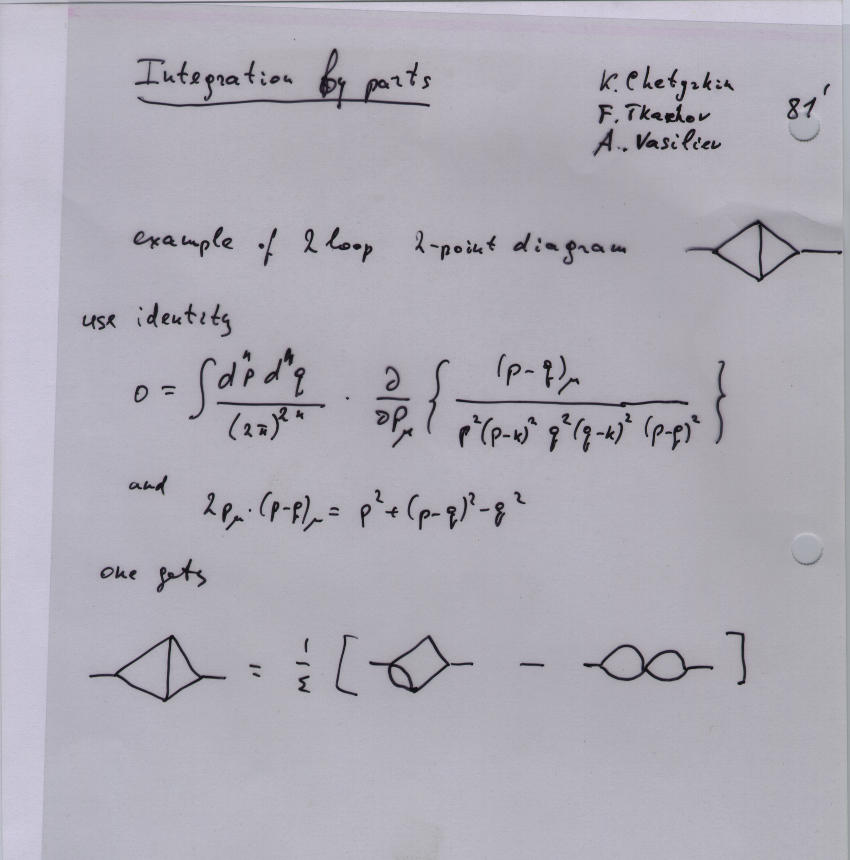 Integration by parts
K. Chetyrkin
F. Tkachov
A. Vasiliev
81'
example of 2 loop 2-point diagram
use identity
0 = ∫ dⁿp dⁿq / (2π)²ⁿ · ∂/∂pμ { (p-q)μ / p²(p-k)² q²(q-k)² (p-q)² }
and
2pμ·(p-q)μ = p²+(p-q)²-q²
one gets
= 1/ε [ - ]